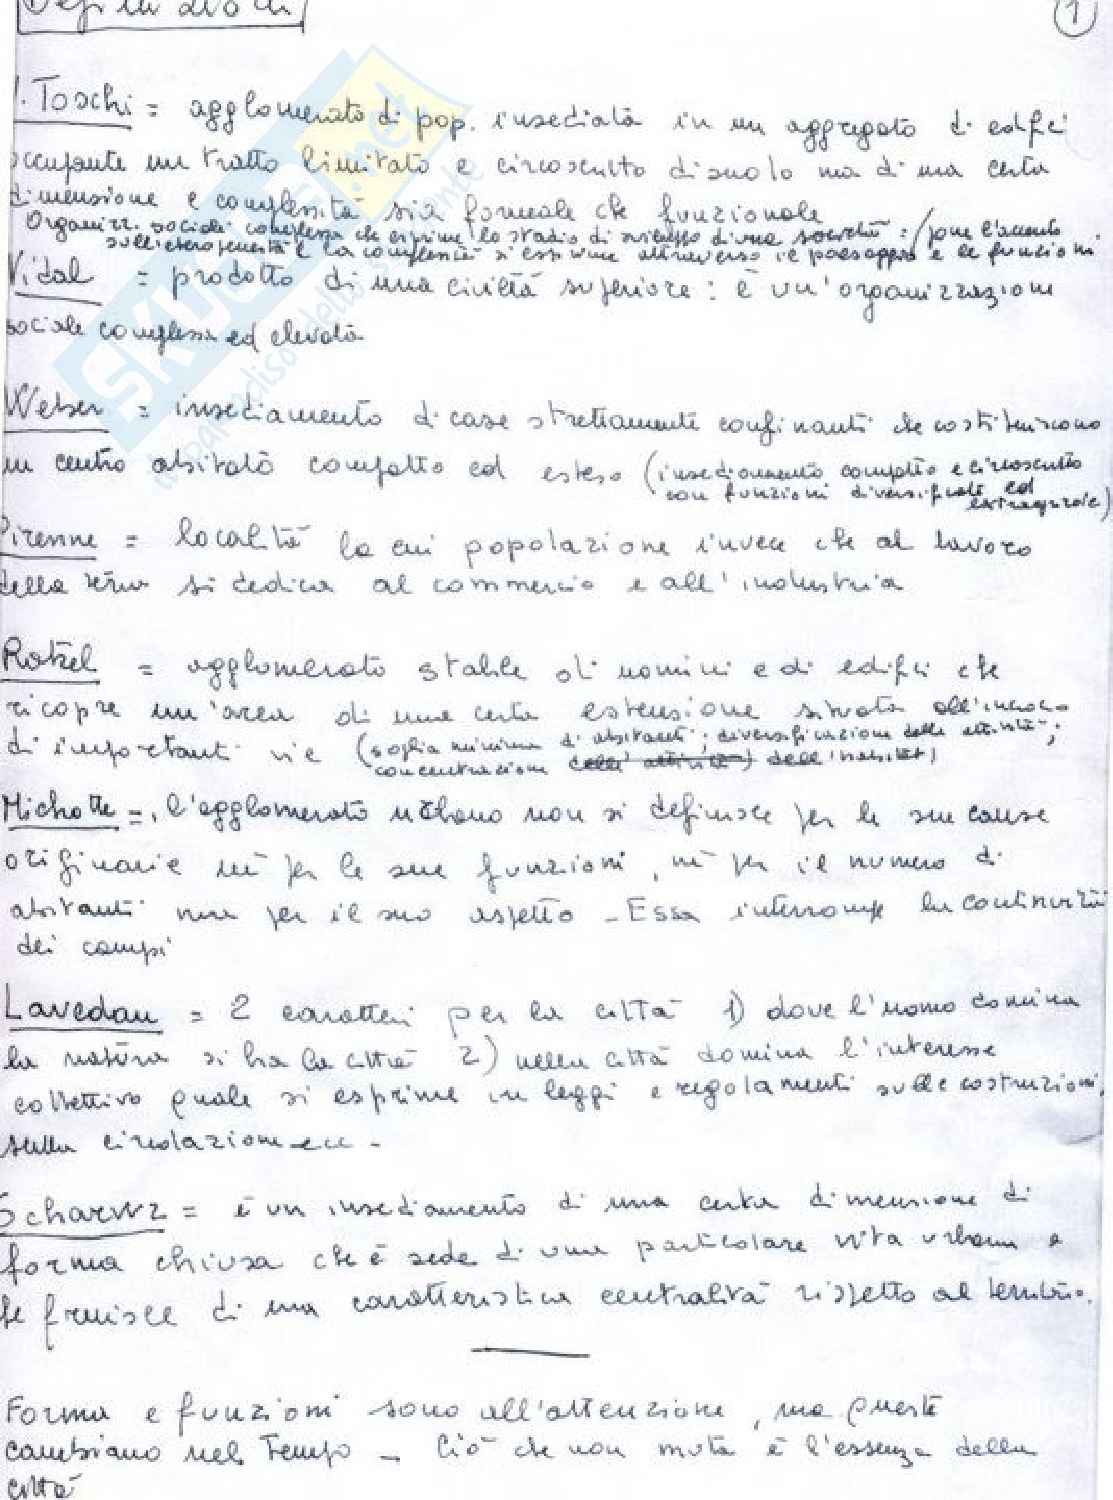 Definizioni
1
U. Toschi = agglomerato di pop. insediata in un aggregato di edifici
occupante un tratto limitato e circoscritto di suolo ma di una certa
dimensione e complessità sia formale che funzionale
Organizz. sociale complessa che esprime lo stadio di sviluppo di una società: / pone l'accento
sull'eterogeneità e la complessità si esprime attraverso il paesaggio e le funzioni
Vidal = prodotto di una civiltà superiore: è un'organizzazione
sociale complessa ed elevata
Weber = insediamento di case strettamente confinanti che costituiscono
un centro abitato compatto ed esteso (insediamento compatto e circoscritto
con funzioni diversificate ed
extragricole)
Pirenne = località la cui popolazione invece che al lavoro
della terra si dedica al commercio e all'industria
Ratzel = agglomerato stabile di uomini e di edifici che
ricopre un'area di una certa estensione situata all'incrocio
di importanti vie (soglia minima di abitanti; diversificazione delle attività;
concentrazione dell'attività) dell'habitat)
Michotte = l'agglomerato urbano non si definisce per le sue cause
originarie nè per le sue funzioni, nè per il numero di
abitanti ma per il suo aspetto - Essa interrompe la continuità
dei campi
Lavedan = 2 caratteri per la città 1) dove l'uomo domina
la natura si ha la città 2) nella città domina l'interesse
collettivo quale si esprime in leggi e regolamenti sulle costruzioni,
sulla circolazione ecc -
Scharwz = è un insediamento di una certa dimensione di
forma chiusa che è sede di una particolare vita urbana e
fruisce di una caratteristica centralità rispetto al territorio.
Forma e funzioni sono all'attenzione, ma queste
cambiano nel Tempo - Ciò che non muta è l'essenza della
città
SKUOLA.net
il paradiso dello studente